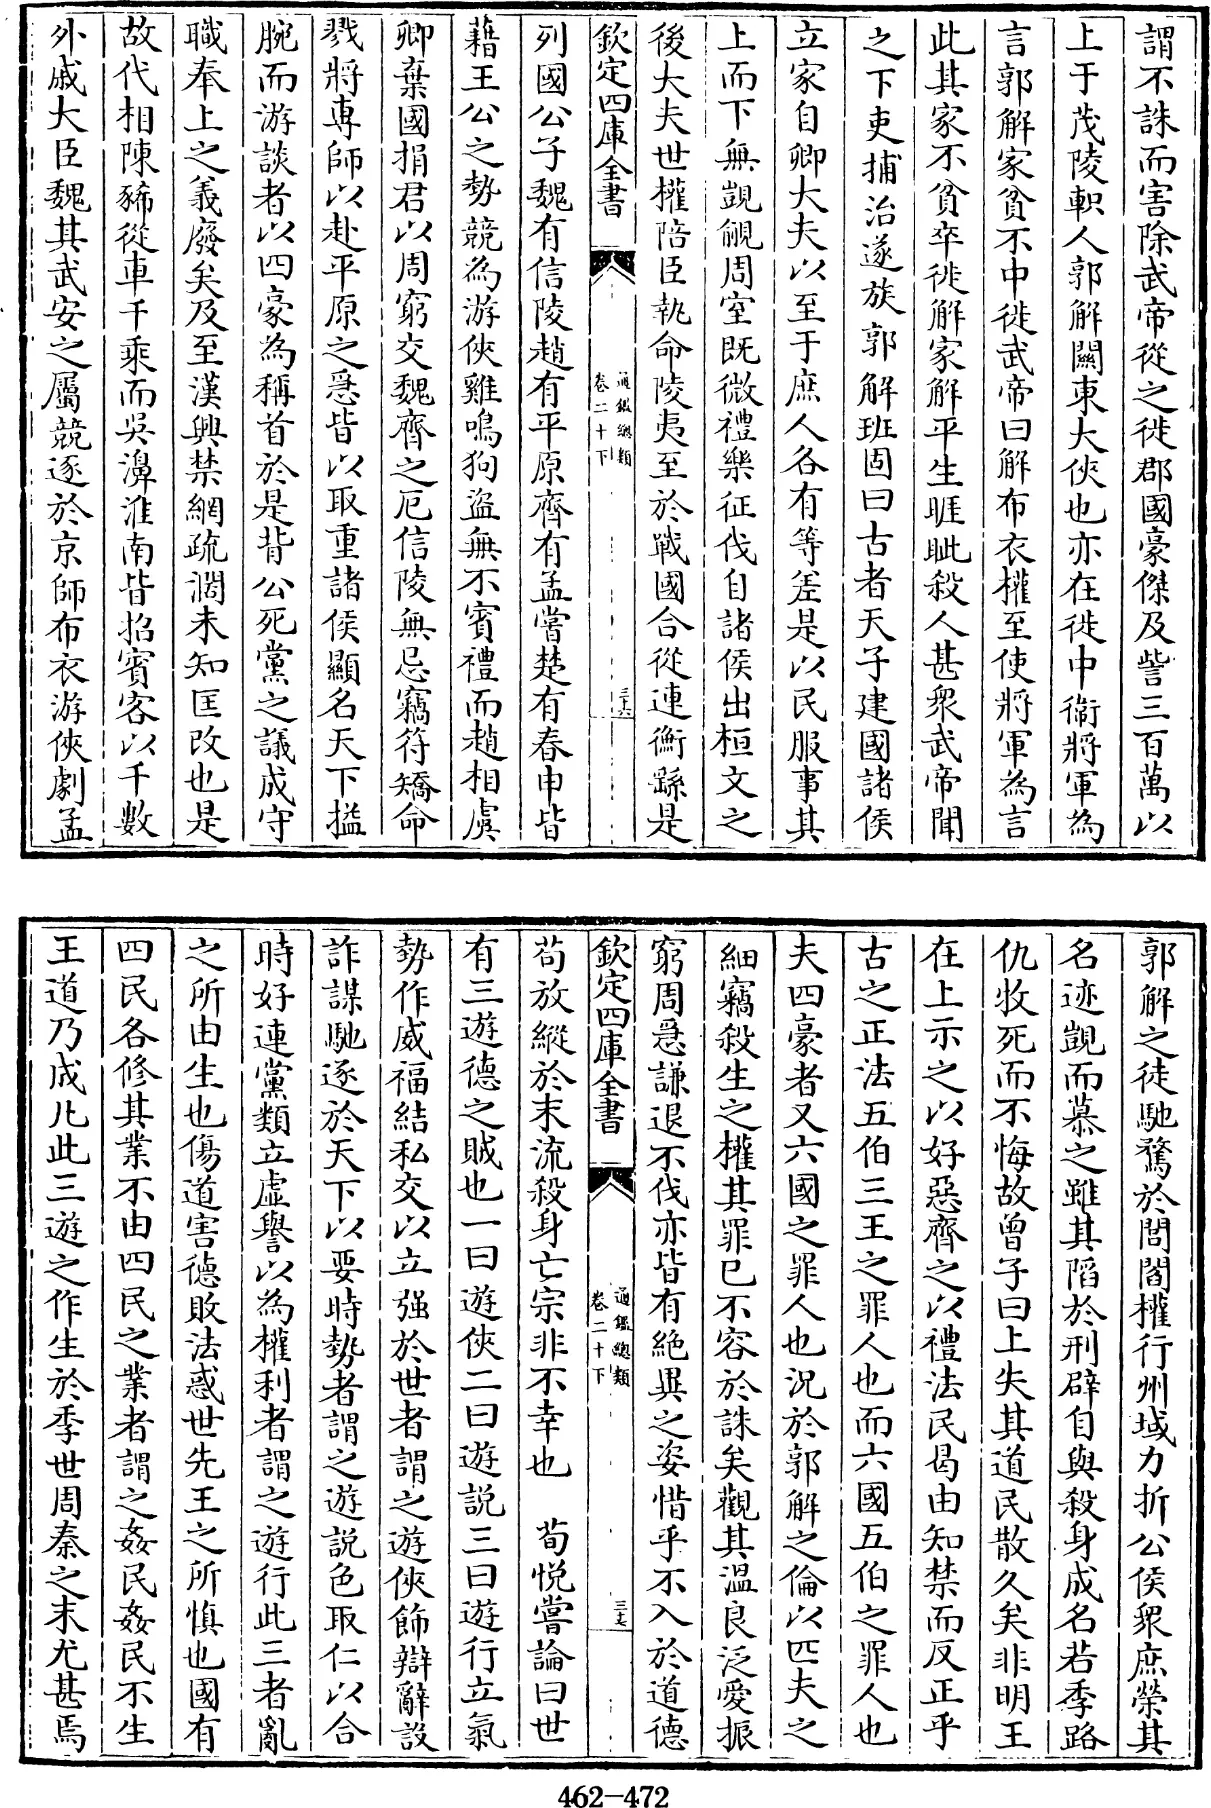 謂不誅而害除武帝從之徙郡國豪傑及訾三百萬以
上于茂陵軹人郭解關東大俠也亦在徙中衞將軍為
言郭解家貧不中徙武帝曰解布衣權至使將軍為言
此其家不貧卒徙解家解平生睚眦殺人甚衆武帝聞
之下吏捕治遂族郭解班固曰古者天子建國諸侯
立家自卿大夫以至于庶人各有等差是以民服事其
上而下無覬覦周室既微禮樂征伐自諸侯出桓文之
後大夫世權陪臣執命陵夷至於戰國合從連衡繇是
欽定四庫全書
通鑑總類
卷二十下
三六
列國公子魏有信陵趙有平原齊有孟嘗楚有春申皆
藉王公之勢競為游俠雞鳴狗盜無不賓禮而趙相虞
卿棄國捐君以周窮交魏齊之厄信陵無忌竊符矯命
戮將專師以赴平原之急皆以取重諸侯顯名天下搤
腕而游談者以四豪為稱首於是背公死黨之議成守
職奉上之義廢矣及至漢興禁網疏濶未知匡改也是
故代相陳豨從車千乘而吳濞淮南皆招賓客以千數
外戚大臣魏其武安之屬競逐於京師布衣游俠劇孟
郭解之徒馳騖於閭閻權行州域力折公侯衆庶榮其
名迹覬而慕之雖其陷於刑辟自與殺身成名若季路
仇牧死而不悔故曾子曰上失其道民散久矣非明王
在上示之以好惡齊之以禮法民曷由知禁而反正乎
古之正法五伯三王之罪人也而六國五伯之罪人也
夫四豪者又六國之罪人也況於郭解之倫以匹夫之
細竊殺生之權其罪已不容於誅矣觀其溫良泛愛振
窮周急謙退不伐亦皆有絶異之姿惜乎不入於道德
欽定四庫全書
通鑑總類
卷二十下
三七
苟放縱於末流殺身亡宗非不幸也　荀悅嘗論曰世
有三遊德之賊也一曰遊俠二曰遊說三曰遊行立氣
勢作威福結私交以立强於世者謂之遊俠飾辯辭設
詐謀馳逐於天下以要時勢者謂之遊說色取仁以合
時好連黨類立虛譽以為權利者謂之遊行此三者亂
之所由生也傷道害德敗法惑世先王之所慎也國有
四民各修其業不由四民之業者謂之姦民姦民不生
王道乃成凡此三遊之作生於季世周秦之末尤甚焉
462-472